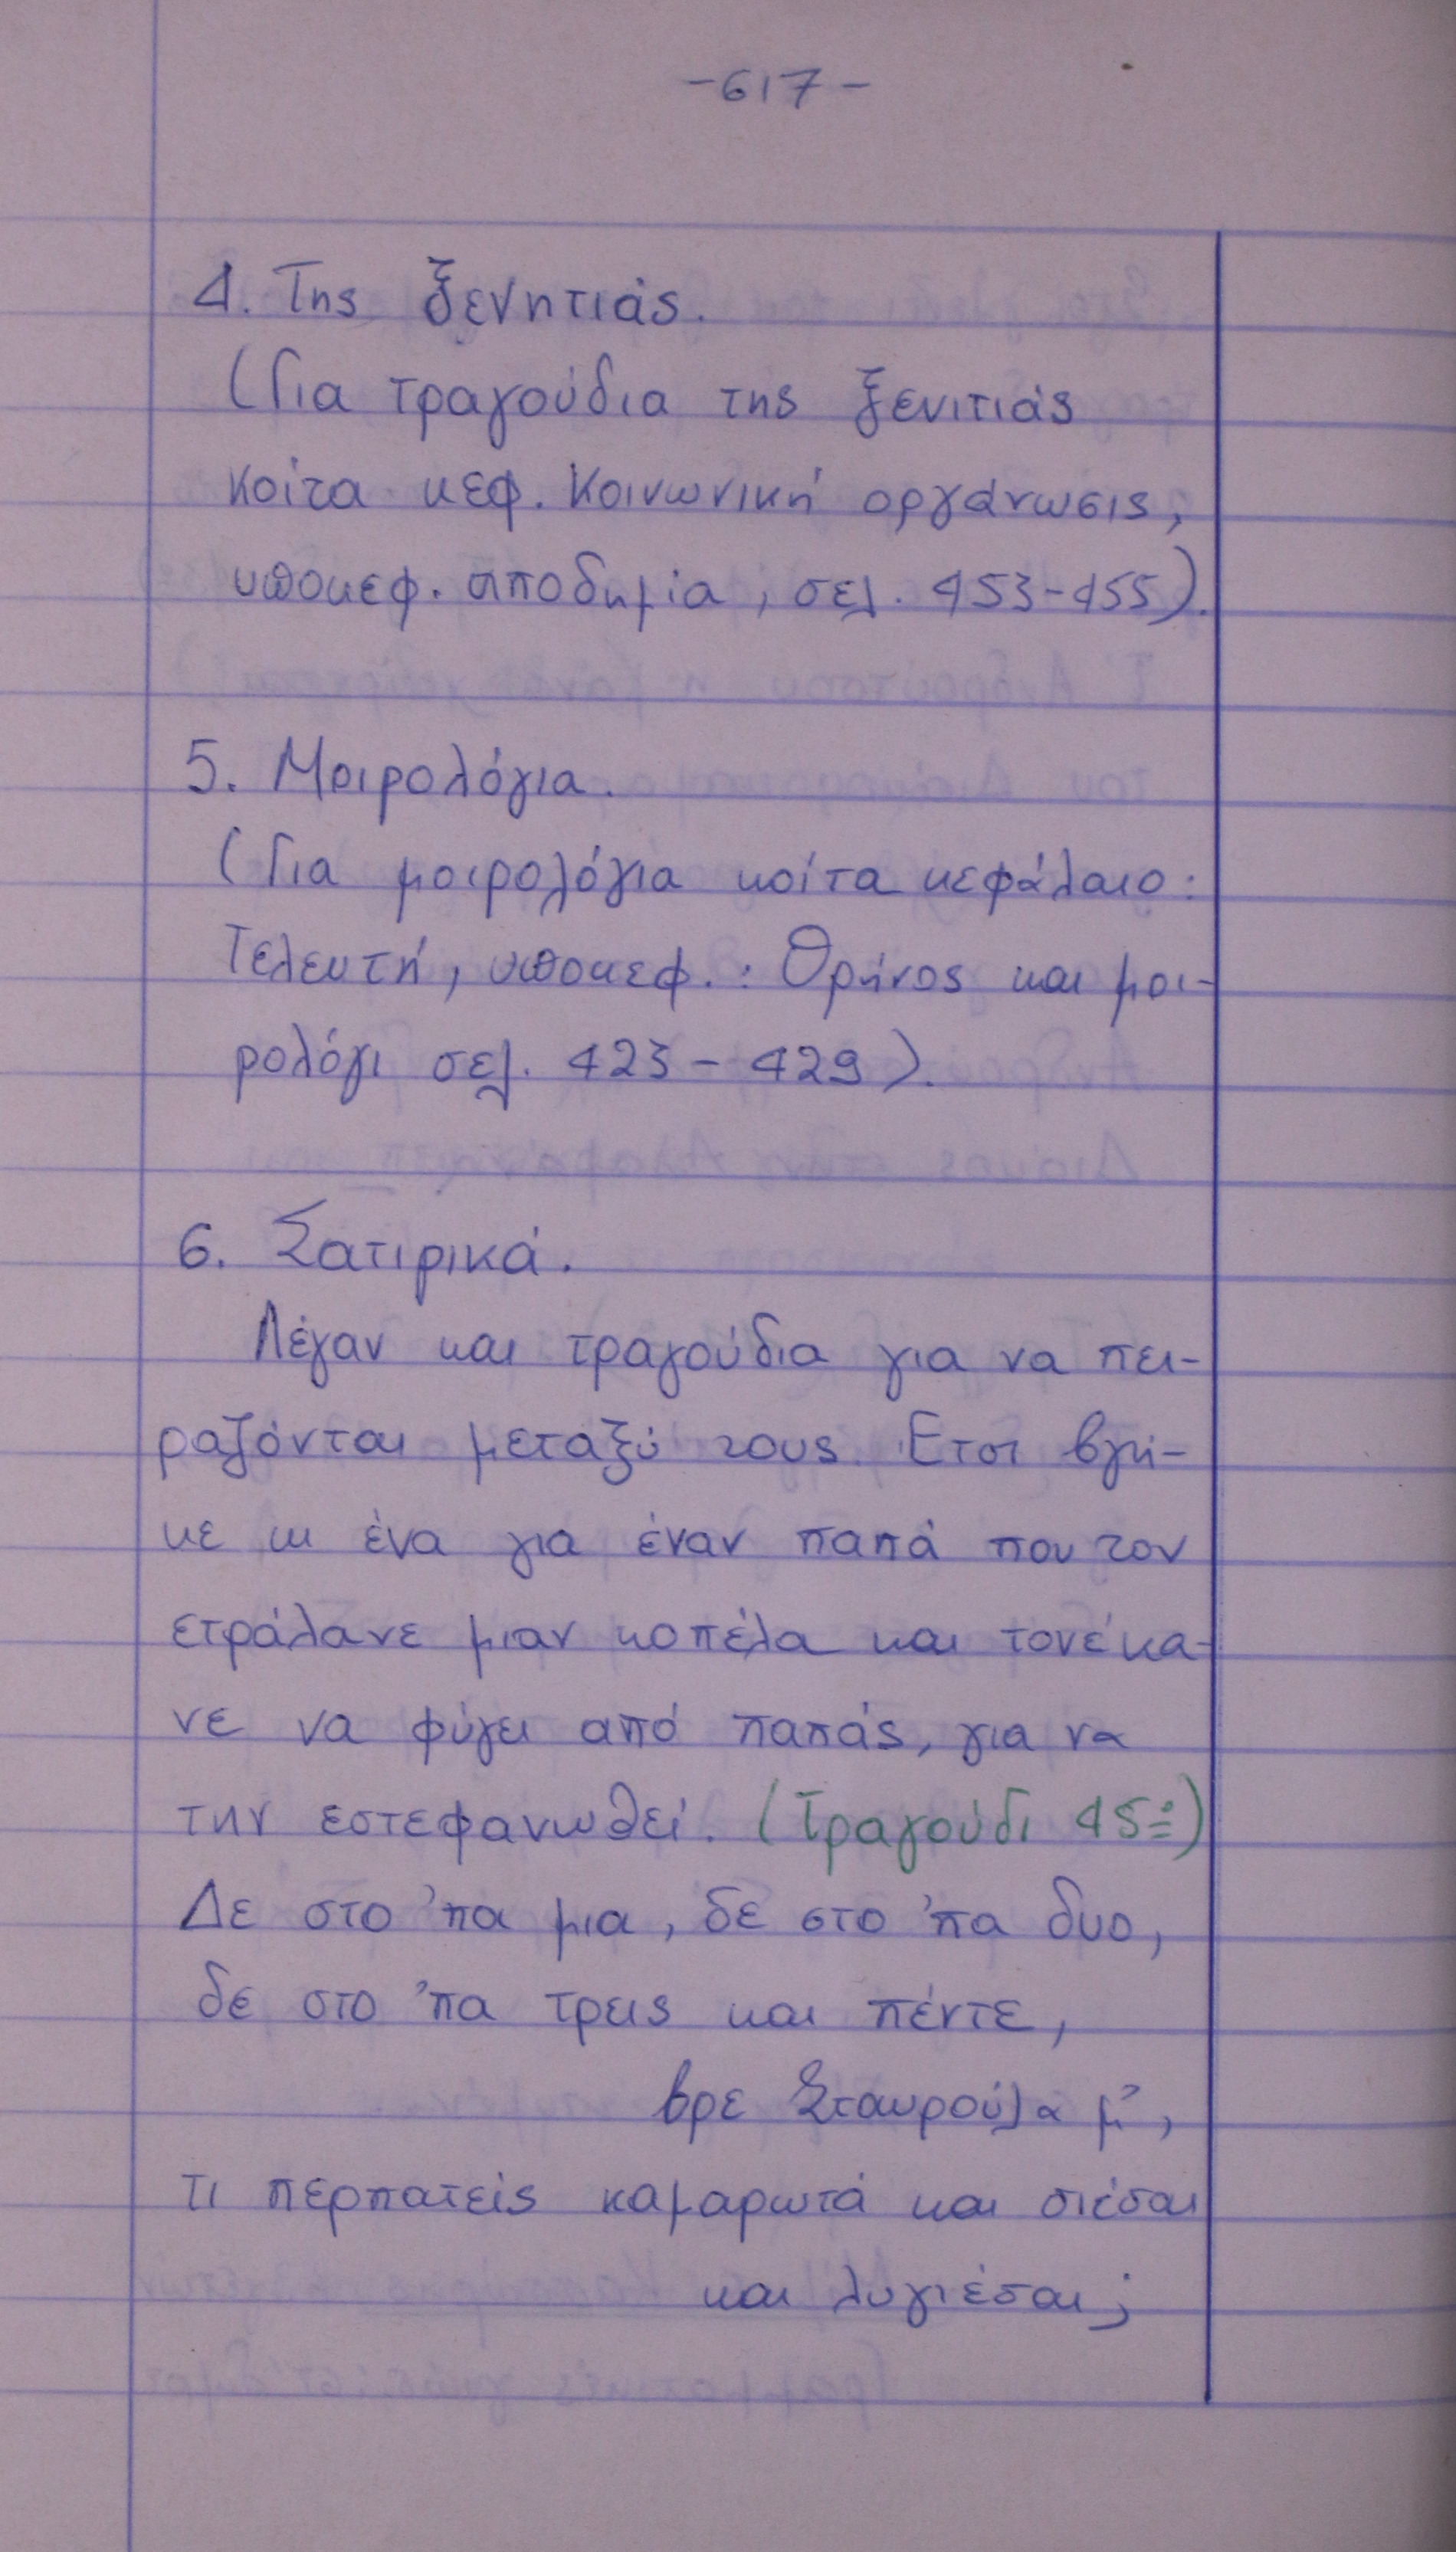 -617-
4. Της ξενητιάς.
(Για τραγούδια της ξενιτιάς
κοίτα κεφ. Κοινωνική οργάνωσις,
υποκεφ. αποδημία, σελ. 453-455).
5. Μοιρολόγια.
(Για μοιρολόγια κοίτα κεφάλαιο:
Τελευτή, υποκεφ.: Θρήνος και μοι-
ρολόγι σελ. 423-429).
6. Σατιρικά.
Λέγαν και τραγούδια για να πει-
ραζόνται μεταξύ τους. Ετσι βγή-
κε κι ένα για έναν παπά που τον
ετράλανε μιαν κοπέλα και τονέκα-
νε να φύγει από παπάς, για να
την εστεφανωθεί. (Τραγούδι 45º)
Δε στο 'πα μια, δε στο 'πα δυο,
δε στο 'πα τρεις και πέντε,
βρε Σταυρούλα μ',
τι περπατείς καμαρωτά και σιέσαι
και λυγιέσαι;